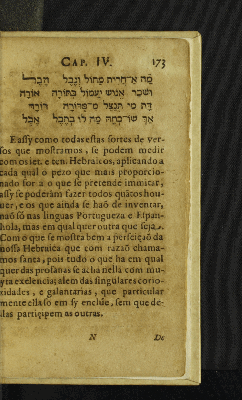 CAP. IV. 173
מה אחרית מחול ונבל הבל
ושכר אנוש יעמול בתורה אורה
דת מי תנצל מ־
אך מה לו בהבל אבל
E assy como todas estas sortes de ver-
sos que mostramos, se podem medir
com os iet. e ten. Hebraicos, aplicando a
cada quál o pezo que mais proporcio-
nado for a o que se pretende imitar,
assy se poderám fazer todos quátos hou-
uer, e os que ainda se haõ de inventar,
naõ só nas linguas Portugueza e Espan-
hola, mas em qual quer outra que seja.
Com o que se mostra bem a perfeiçaõ da
nossa Hebraica que com razaõ chama-
mos santa, pois tudo o que ha em qual
quer das profanas se acha nella com mu-
yta exelencia; alem das singulares corio-
zidades, e galantarias, que particular
mente ella só em sy enclúe, sem que de-
las participem as outras.
N De